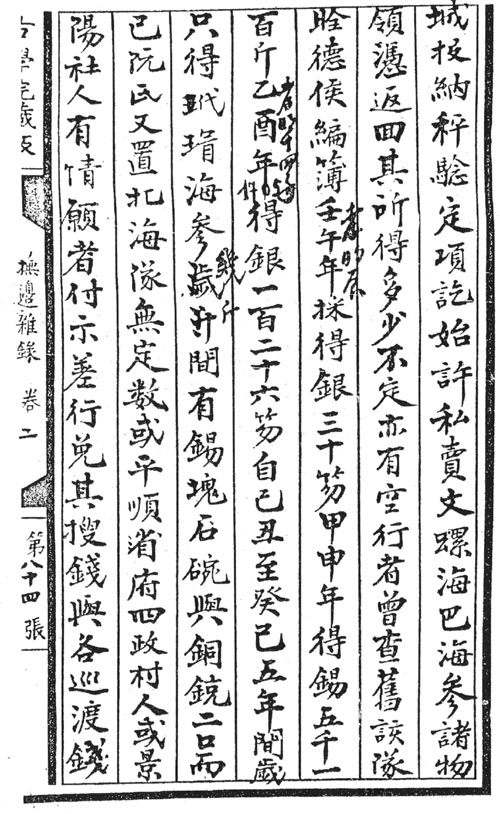 城投納秤驗定項訖始許私賣文螺海巴海參諸物
領憑返回其所得多少不定亦有空行者曾查舊該隊
德侯編簿壬午年採得銀三十笏甲申年得錫五千一
百斤乙酉年得銀一百二十六笏自己丑至癸巳五年間歲
只得玳瑁海參歲間有錫塊石碗與銅銃二口而
幾斤
已阮氏又置北海隊無定數或平順府四政村人或景
陽社人有情願者付示差行免其搜錢與各巡渡錢
古學院藏板
撫邊雜錄 卷二
第八十四張